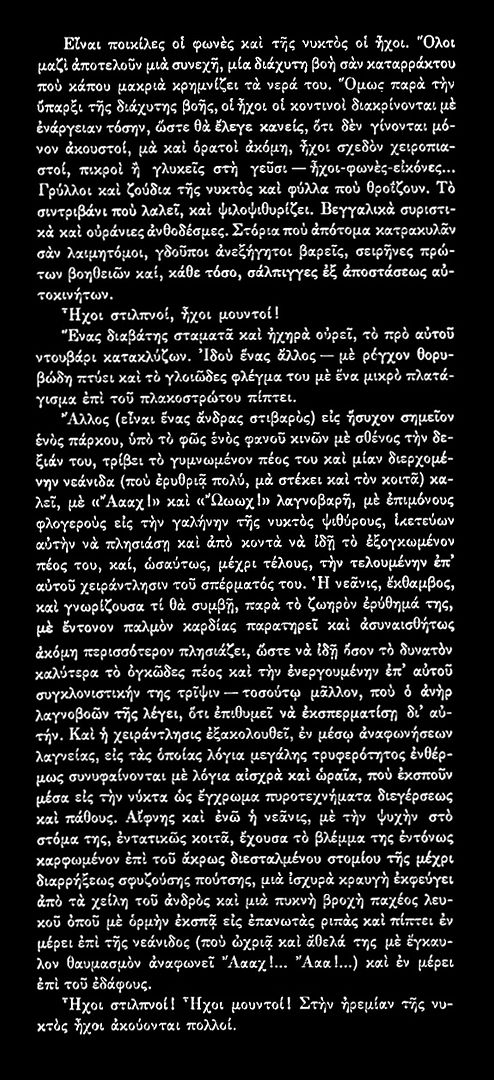 Εἶναι ποικίλες οἱ φωνὲς καὶ τῆς νυκτὸς οἱ ἦχοι. Ὅλοι
μαζὶ ἀποτελοῦν μιὰ συνεχῆ, μία διάχυτη βοὴ σὰν καταρράκτου
ποὺ κάπου μακριὰ κρημνίζει τὰ νερά του. Ὅμως παρὰ τὴν
ὕπαρξι τῆς διάχυτης βοῆς, οἱ ἦχοι οἱ κοντινοὶ διακρίνονται μὲ
ἐνάργειαν τόσην, ὥστε θὰ ἔλεγε κανείς, ὅτι δὲν γίνονται μό-
νον ἀκουστοί, μὰ καὶ ὁρατοὶ ἀκόμη, ἦχοι σχεδὸν χειροπια-
στοί, πικροὶ ἢ γλυκεῖς στὴ γεῦσι — ἦχοι-φωνὲς-εἰκόνες...
Γρύλλοι καὶ ζούδια τῆς νυκτὸς καὶ φύλλα ποὺ θροΐζουν. Τὸ
σιντριβάνι ποὺ λαλεῖ, καὶ ψιλοψιθυρίζει. Βεγγαλικὰ συριστι-
κὰ καὶ οὐράνιες ἀνθοδέσμες. Στόρια ποὺ ἀπότομα κατρακυλᾶν
σὰν λαιμητόμοι, γδοῦποι ἀνεξήγητοι βαρεῖς, σειρῆνες πρώ-
των βοηθειῶν καί, κάθε τόσο, σάλπιγγες ἐξ ἀποστάσεως αὐ-
τοκινήτων.
Ἦχοι στιλπνοί, ἦχοι μουντοί!
Ἕνας διαβάτης σταματᾶ καὶ ἠχηρὰ οὐρεῖ, τὸ πρὸ αὐτοῦ
ντουβάρι κατακλύζων. Ἰδοὺ ἕνας ἄλλος — μὲ ρέγχον θορυ-
βώδη πτύει καὶ τὸ γλοιῶδες φλέγμα του μὲ ἕνα μικρὸ πλατά-
γισμα ἐπὶ τοῦ πλακοστρώτου πίπτει.
Ἄλλος (εἶναι ἕνας ἄνδρας στιβαρὸς) εἰς ἥσυχον σημεῖον
ἑνὸς πάρκου, ὑπὸ τὸ φῶς ἑνὸς φανοῦ κινῶν μὲ σθένος τὴν δε-
ξιάν του, τρίβει τὸ γυμνωμένον πέος του καὶ μίαν διερχομέ-
νην νεάνιδα (ποὺ ἐρυθριᾶ πολύ, μὰ στέκει καὶ τὸν κοιτᾶ) κα-
λεῖ, μὲ «Ἄααχ!» καὶ «Ὤωωχ!» λαγνοβαρῆ, μὲ ἐπιμόνους
φλογεροὺς εἰς τὴν γαλήνην τῆς νυκτὸς ψιθύρους, ἱκετεύων
αὐτὴν νὰ πλησιάση καὶ ἀπὸ κοντὰ νὰ ἰδῆ τὸ ἐξογκωμένον
πέος του, καί, ὡσαύτως, μέχρι τέλους, τὴν τελουμένην ἐπ’
αὐτοῦ χειράντλησιν τοῦ σπέρματός του. Ἡ νεᾶνις, ἔκθαμβος,
καὶ γνωρίζουσα τί θὰ συμβῆ, παρὰ τὸ ζωηρὸν ἐρύθημά της,
μὲ ἔντονον παλμὸν καρδίας παρατηρεῖ καὶ ἀσυναισθήτως
ἀκόμη περισσότερον πλησιάζει, ὥστε νὰ ἰδῆ ὅσον τὸ δυνατὸν
καλύτερα τὸ ὀγκῶδες πέος καὶ τὴν ἐνεργουμένην ἐπ’ αὐτοῦ
συγκλονιστικήν της τρῖψιν — τοσούτῳ μᾶλλον, ποὺ ὁ ἀνὴρ
λαγνοβοῶν τῆς λέγει, ὅτι ἐπιθυμεῖ νὰ ἐκσπερματίση δι’ αὐ-
τήν. Καὶ ἡ χειράντλησις ἐξακολουθεῖ, ἐν μέσῳ ἀναφωνήσεων
λαγνείας, εἰς τὰς ὁποίας λόγια μεγάλης τρυφερότητος ἐνθέρ-
μως συνυφαίνονται μὲ λόγια αἰσχρὰ καὶ ὡραῖα, ποὺ ἐκσποῦν
μέσα εἰς τὴν νύκτα ὡς ἔγχρωμα πυροτεχνήματα διεγέρσεως
καὶ πάθους. Αἴφνης καὶ ἐνῶ ἡ νεᾶνις, μὲ τὴν ψυχὴν στὸ
στόμα της, ἐντατικῶς κοιτᾶ, ἔχουσα τὸ βλέμμα της ἐντόνως
καρφωμένον ἐπὶ τοῦ ἄκρως διεσταλμένου στομίου τῆς μέχρι
διαρρήξεως σφυζούσης πούτσης, μιὰ ἰσχυρὰ κραυγὴ ἐκφεύγει
ἀπὸ τὰ χείλη τοῦ ἀνδρὸς καὶ μιὰ πυκνὴ βροχὴ παχέος λευ-
κοῦ ὀποῦ μὲ ὁρμὴν ἐκσπᾶ εἰς ἐπανωτὰς ριπὰς καὶ πίπτει ἐν
μέρει ἐπὶ τῆς νεάνιδος (ποὺ ὠχριᾶ καὶ ἄθελά της μὲ ἔγκαυ-
λον θαυμασμὸν ἀναφωνεῖ Ἄααχ!... Ἄαα!...) καὶ ἐν μέρει
ἐπὶ τοῦ ἐδάφους.
Ἦχοι στιλπνοί! Ἦχοι μουντοί! Στὴν ἠρεμίαν τῆς νυ-
κτὸς ἦχοι ἀκούονται πολλοί.